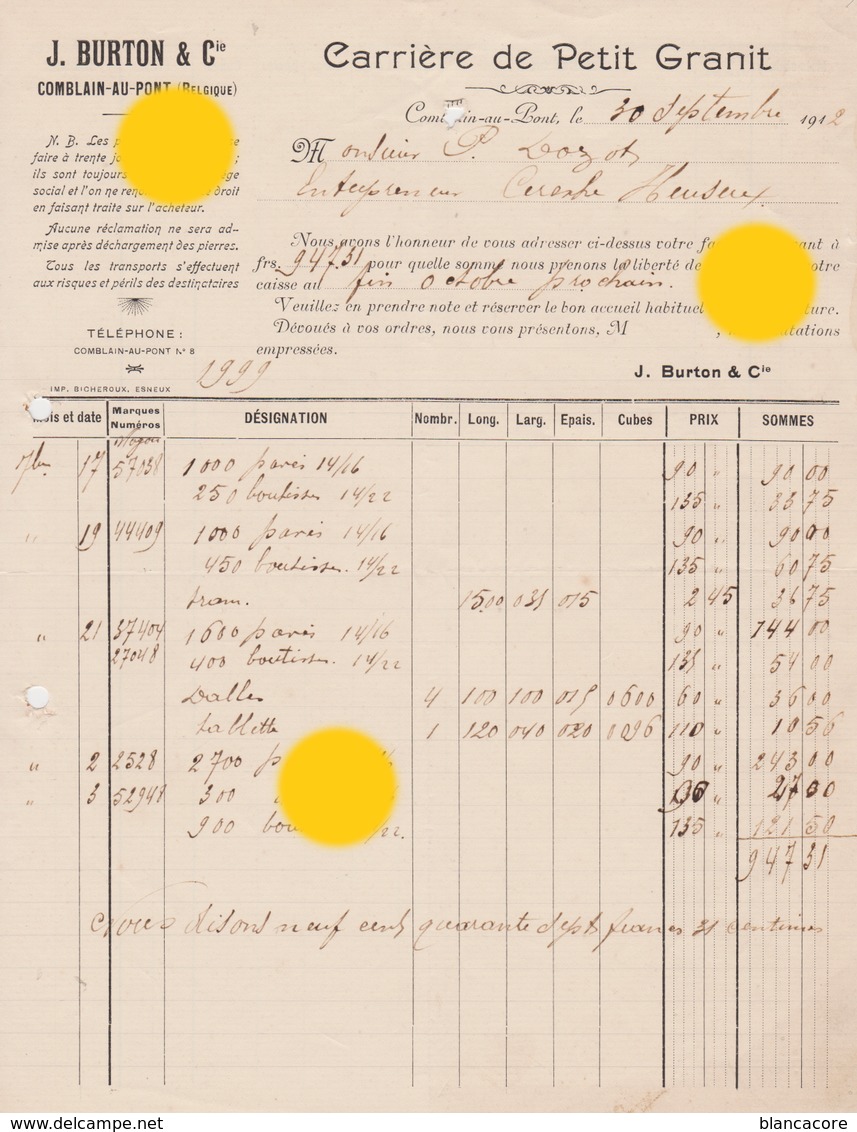 J. BURTON & Cie
COMBLAIN-AU-PONT (BELGIQUE)
N. B. Les
faire à trente
ils sont toujours
social et l'on ne droit
en faisant traite sur l'acheteur.
Aucune réclamation ne sera ad-
mise après déchargement des pierres.
Tous les transports s'effectuent
aux risques et périls des destinctaires
TÉLÉPHONE :
COMBLAIN-AU-PONT No 8
IMP. BICHEROUX, ESNEUX
Carrière de Petit Granit
Comblain-au-Pont, le 30 Septembre 1912
Monsieur P. Dozot
Entrepreneur Cerexhe Heuseux
Nous avons l'honneur de vous adresser ci-dessus votre à
frs. 947.31 pour quelle somme nous prenons la liberté de
caisse au fin octobre prochain.
Veuillez en prendre note et réserver le bon accueil habituel
Dévoués à vos ordres, nous vous présentons, M ,
empressées.
J. Burton & Cie
1999
Mois et date Marques Numéros DÉSIGNATION Nombr. Long. Larg. Epais. Cubes PRIX SOMMES
7bre 17 57038 1000 pavés 14/16 90 " 90 00
250 boutisses 14/22 135 " 33 75
" 19 44409 1000 pavés 14/16 90 " 90 00
450 boutisses. 14/22 135 " 60 75
1500 031 015 2 45 36 75
" 21 37404 1600 pavés 14/16 90 " 144 00
27048 400 boutisses. 14/22 135 " 54 00
Dalles 4 100 100 015 0600 60 " 36 00
tablette 1 120 040 020 0096 110 " 10 56
" 2 2528 2700 90 " 243 00
" 3 52948 300 " 27 00
900 /22. 135 " 121 50
947 31
Nous disons neuf cent quarante sept francs 31 centimes
blancacore